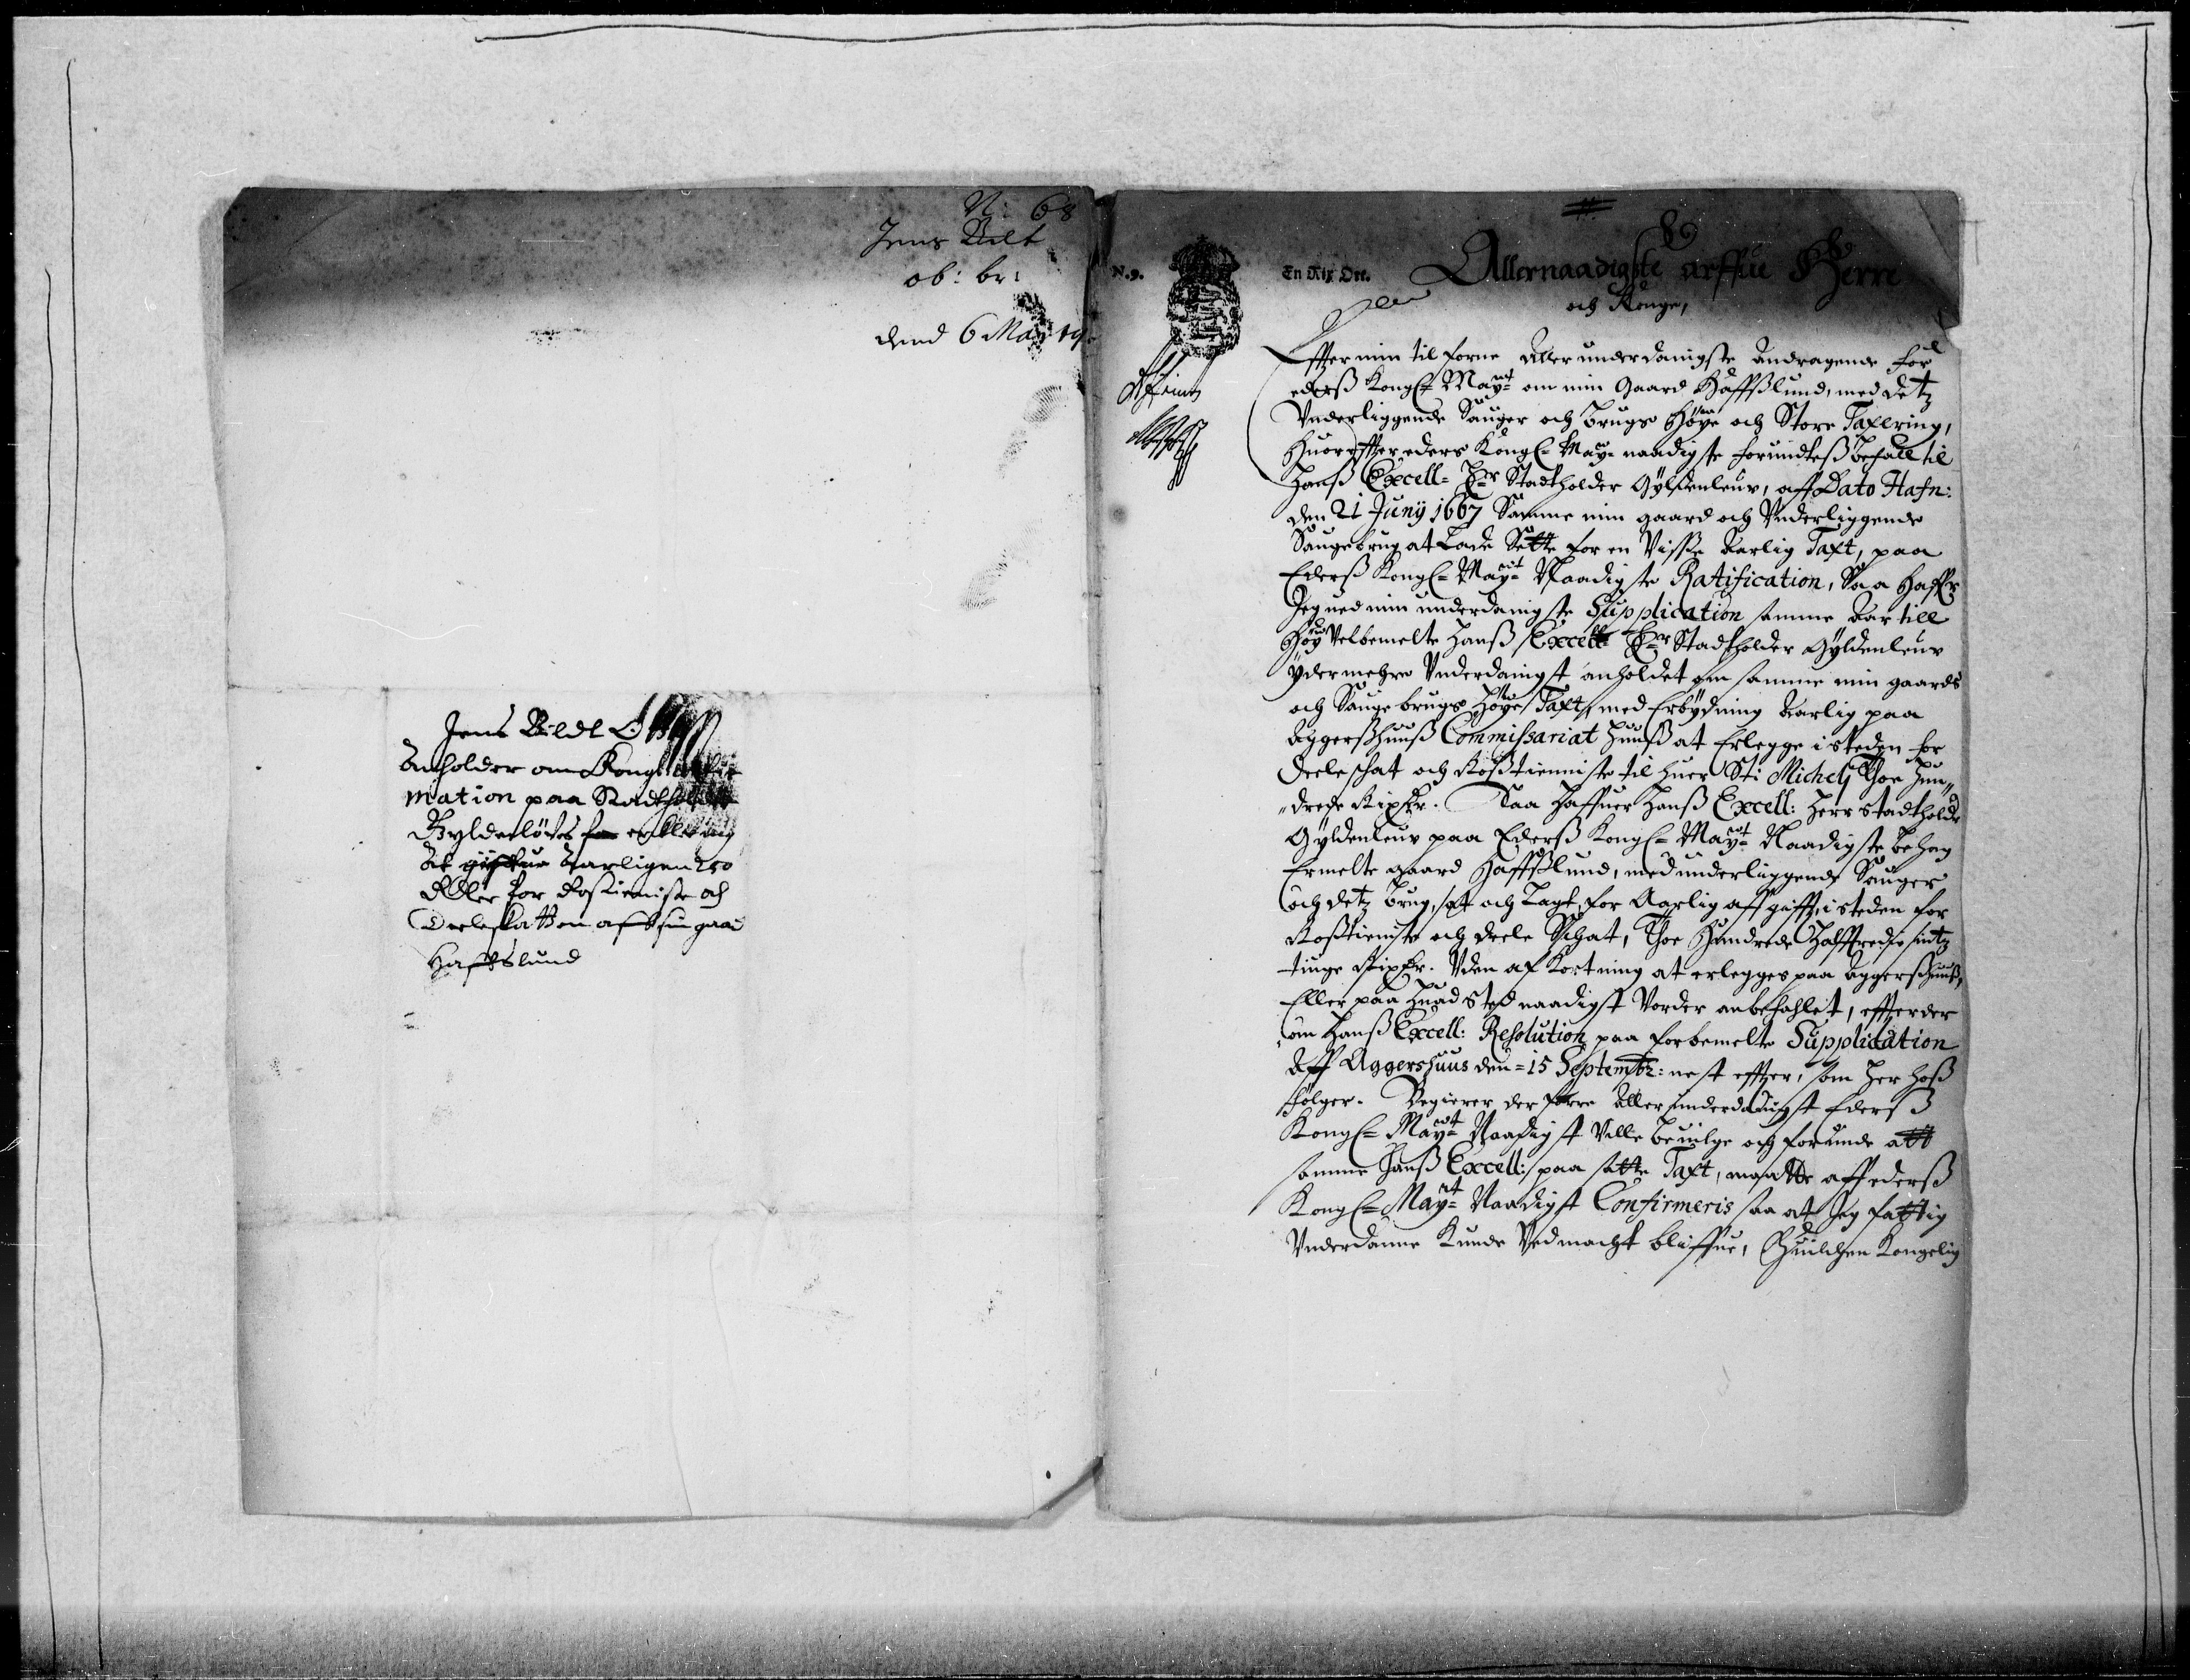 N: 68
Jens Bilt
ob: br:
dend 6 Maj
Jens Bildt
Anholder om Kongl
mation paa Stadtholder
Gyldenlöwes erklering
At Aarligen 250
Rdler for Rostieniste och
Deeleskatten aff sin gaard
Haffslund
N. 9.
En Rix Ort.
Allernaadigste arffue Herre
och Konge,
Effter min til forne Aller underdanigste Andragende for
ederß Kongl= Mayt= om min Gaard Haffßlund, med detz
Vnderliggende Sauger och brugs Höye och Store Taxering,
Huoreffter eders Kongl= May= naadigste forundteß befall til
Hanß Excell= Hr Stadtholder Gyldenleuw, aff Dato Hafn:
den 21 Junij 1667 Samme min gaard och Vnderliggende
Saugebrug at Lade Sette for en Visse Aarlig Taxt, paa
Ederß Kongl= Mayt= Naadigste Ratification, Saa Haffr
Jeg ued min underdanigste Supplication samme Aar till
Höy Velbemelte Hanß Excell= Hr Stadtholder Gyldenleuw
ydermehre Vnderdanigst anholdet om samme min gaards
och Sauge brugs Höye Taxt, med Erbydning Aarlig paa
Aggerßhuuß Commissariat Huuß at Erlegge i steden for
Deele schat och Roßtienniste til huer Sti Michelj Thoe Hun„
„drede Rixdr. Saa Haffuer Hanß Excell: Herr Stadtholder
Gyldenleuw paa Ederß Kongl= Mayt= Naadigste behag
Ermelte gaard Haffßlund, med underliggende Sauger
och detz brug, sat och Lagt, for Aarlig aff gifft, i steden for
Roßtieniste och deele Schat, Thoe Hundrede Halfftredsesints
tiuge Rixdr. Vden af Kortning at erlegges paa Aggerßhuuß,
Eller paa huad sted naadigst Vorder anbefahlet, effter der
om Hanß Excell: Resolution paa forbemelte Supplication
Aff Aggershuus den = 15 Septembr: nest effter, som her hoß
fölger. Begierer der forre Aller underdanigst Ederß
Kongl= Mayt= Naadigst Ville beuilge och forunde att
samme Hanß Excell: paa satte Taxt, maatte aff ederß
Kongl= Mayt= Naadigst Confirmeris saa at Jeg fattig
Vnderdanne Kunde Vedmacht bliffue, Huilchen Kongelig